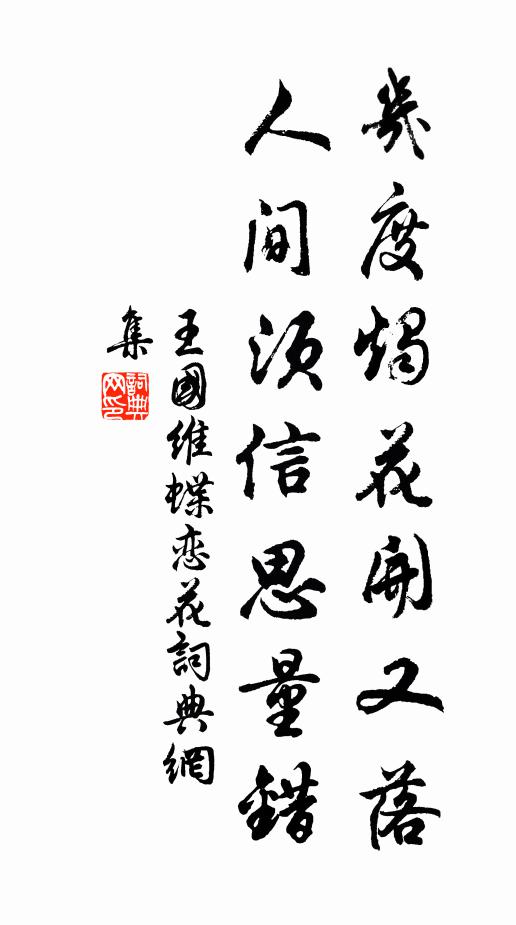 幾度燭花開又落
人間須信思量錯
王國維蝶恋花詞典網
集
詞典
网印